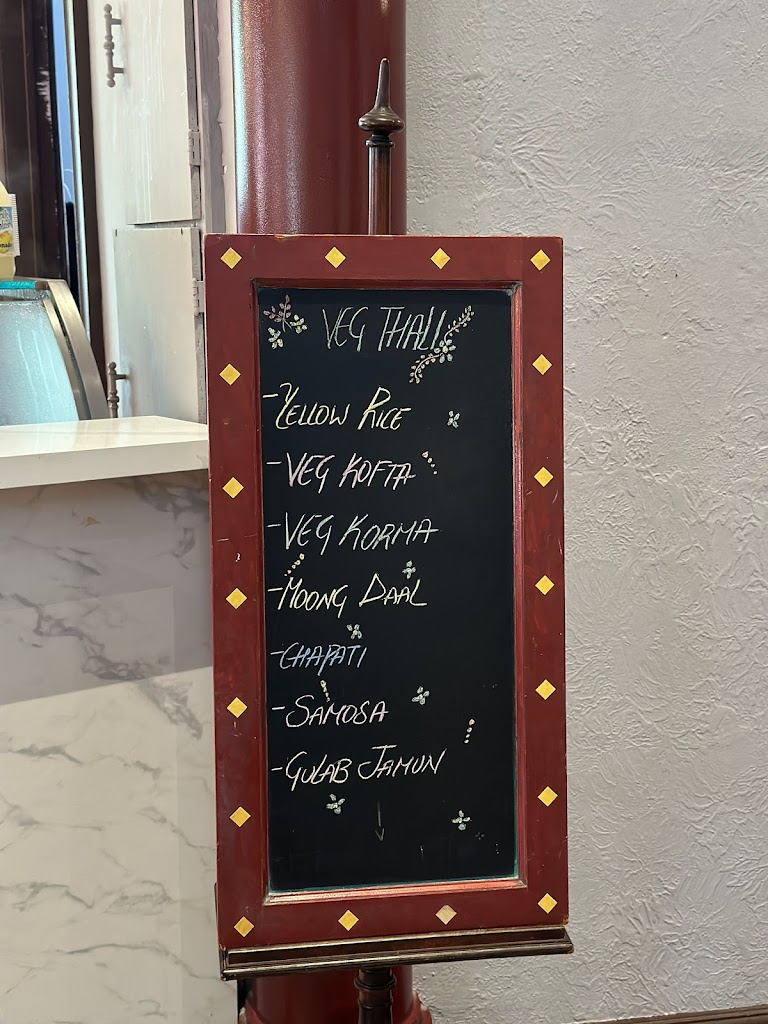 VEG THALI
- YELLOW RICE
- VEG KOFTA
- VEG KORMA
- MOONG DAAL
- CHAPATI
- SAMOSA
- GULAB JAMUN